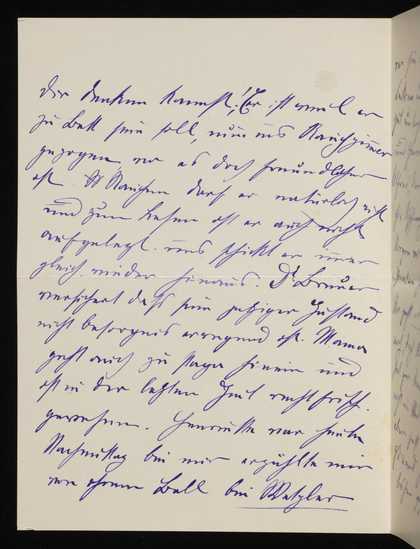 Dir denken kannst! Er ist weil er
zu Bett sein soll, nun ins Rauchzimmer
gezogen, wo es doch freundlicher
ist. Rauchen darf er natürlich nicht
und zum Lesen ist er auch nicht
aufgelegt. uns schickt er immer
gleich wieder hinaus. Dr Breuer
versichert daß sein jetziger Zustand
nicht besorgnis erregend ist. Mama
geht auch zu hinein und
ist in der letzten Zeit recht frisch
gewesen. Henriette war heute
Nachmittag bei mir erzählte mir
von ihrem Ball bei Wetzler